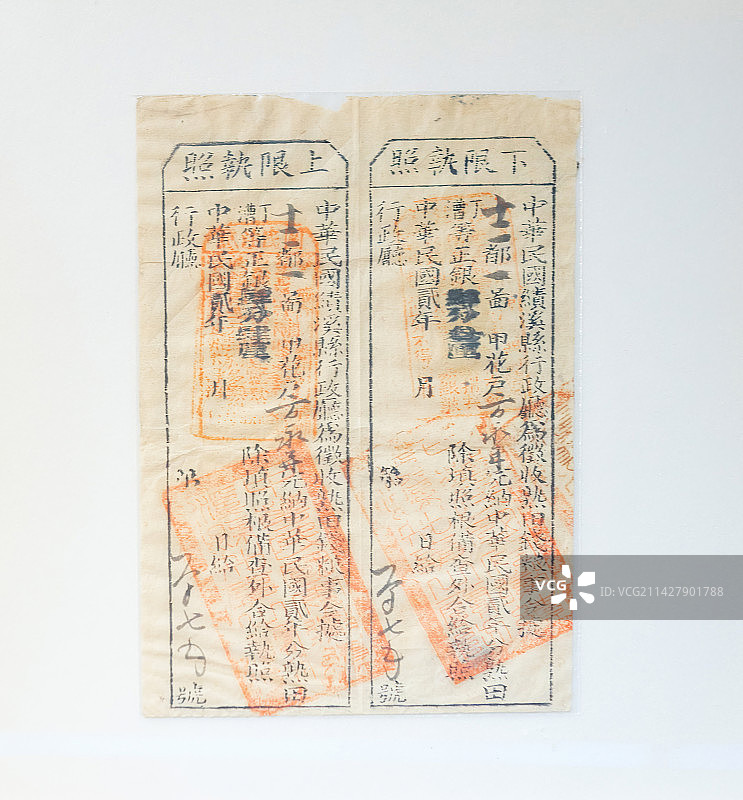 下限執照
中華民國績溪縣行政廳爲徵收熟田錢粮事今據
十一都一啚 甲花戶方永年完納中華民國貳年分熟田
丁漕等正銀 除填照根備查外合給執照
中華民國貳年 月 日給
行政廳 第 號
上限執照
中華民國績溪縣行政廳爲徵收熟田錢粮事今據
十一都一啚 甲花戶方永年完納中華民國貳年分熟田
丁漕等正銀 除填照根備查外合給執照
中華民國貳年 月 日給
行政廳 號
VCG
VCG
ID: VCG211427901788